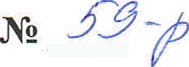 № 59-р